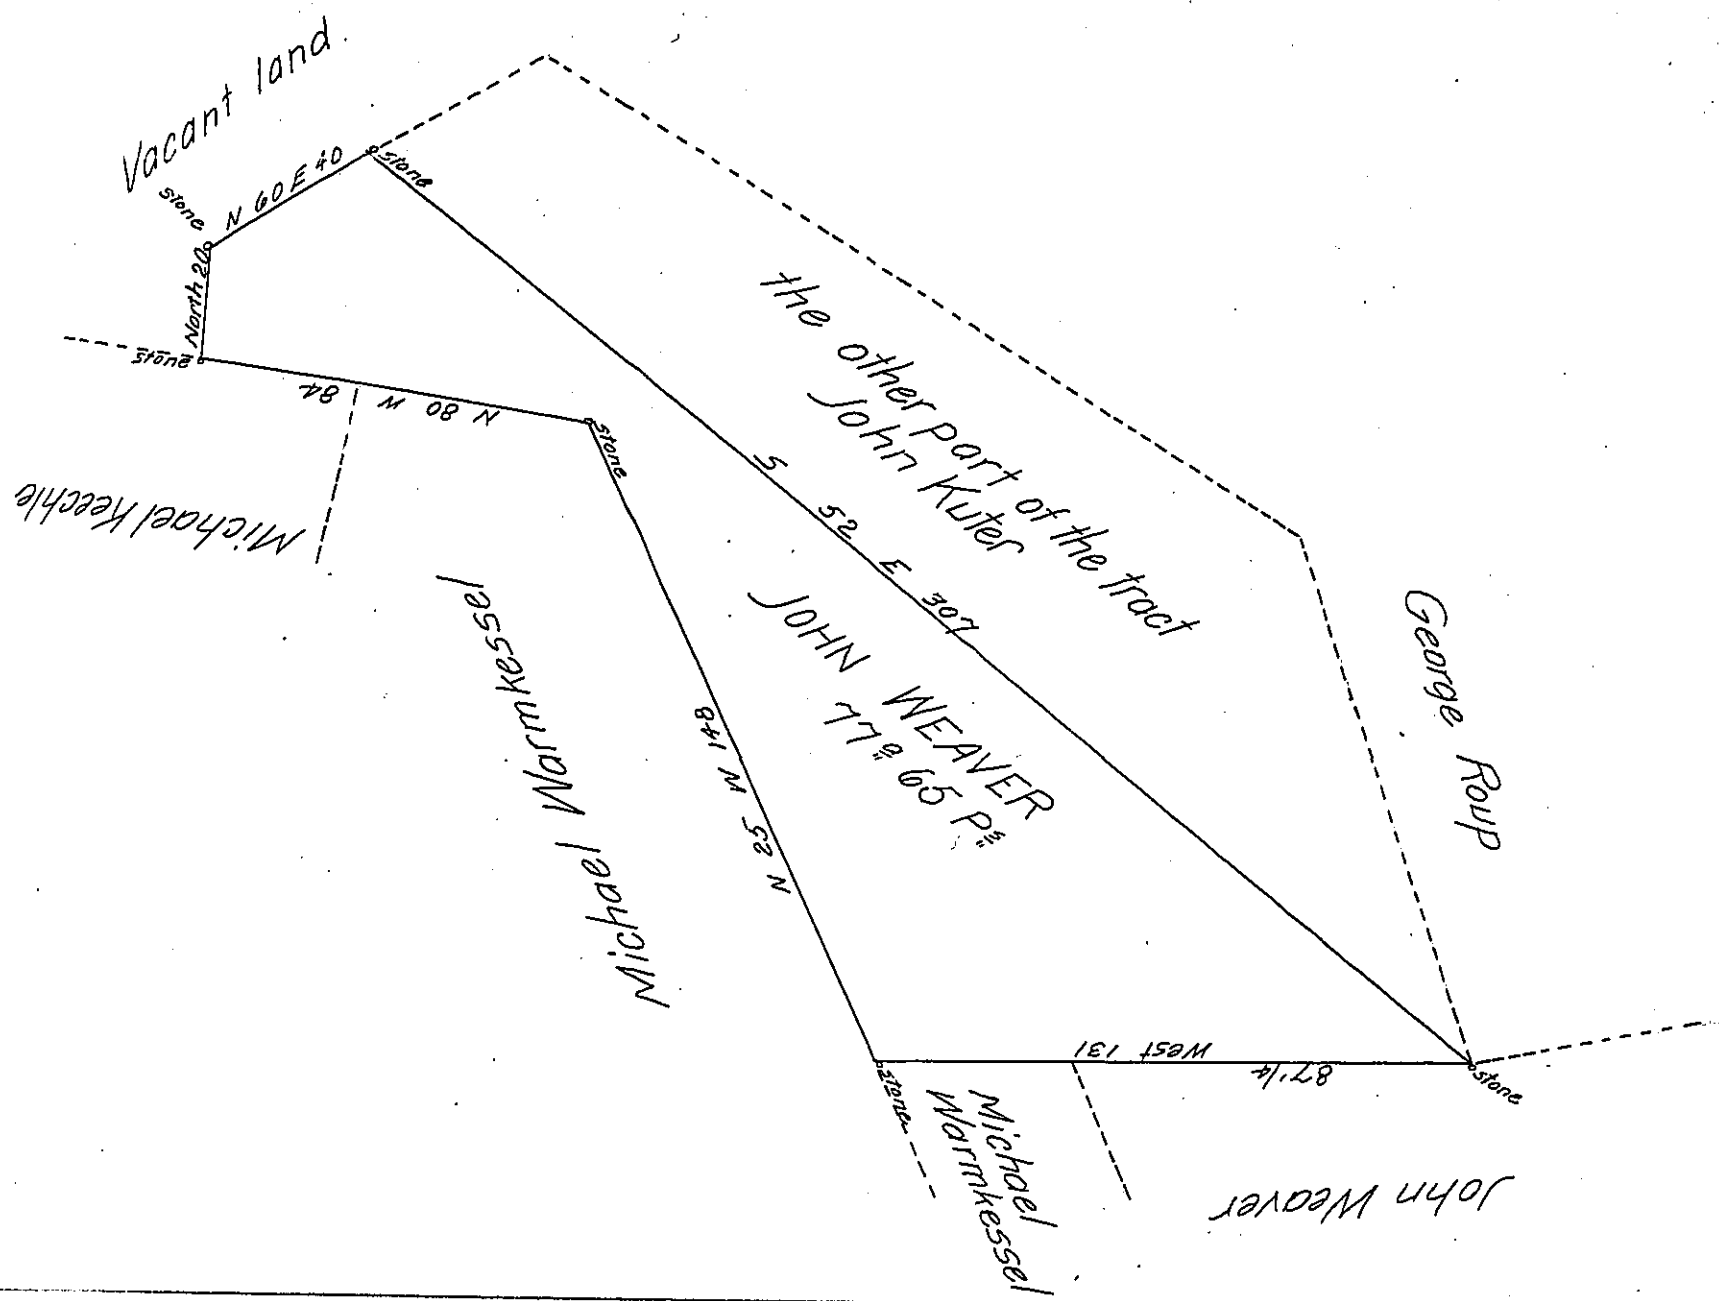 Vacant land.
stone
N 60 E 40
stone
North 20
stone
N 80 W 84
stone
Michael Keechle
the other part of the tract
John Kuter
S 52 E 307
JOHN WEAVER
77a 65 Ps
George Roup
Michael Warmkessel
N 25 W 148
West 131
87 1/4
stone
stone
Michael
Warmkessel
John Weaver